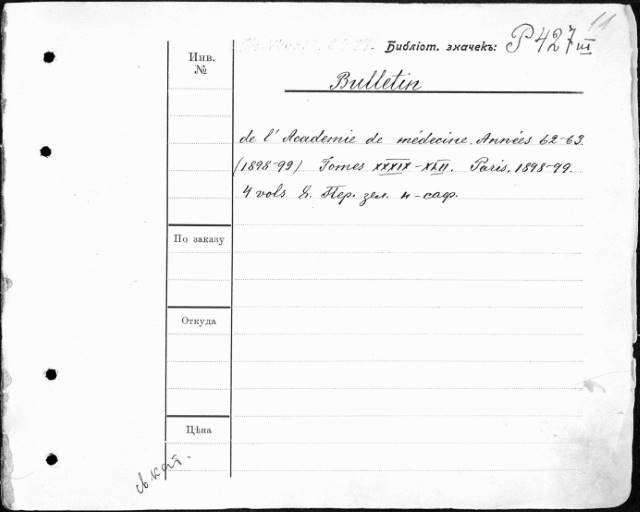 11
Библіот. значекъ: P 427 III
Инв.
№
Bulletin
de l'Academie de médecine. Années 62-63.
(1898-99) Tomes XXXIX-XLII. Paris. 1898-99.
4 vols 8. Пер. зел. н-саф.
По заказу
Откуда
Цѣна